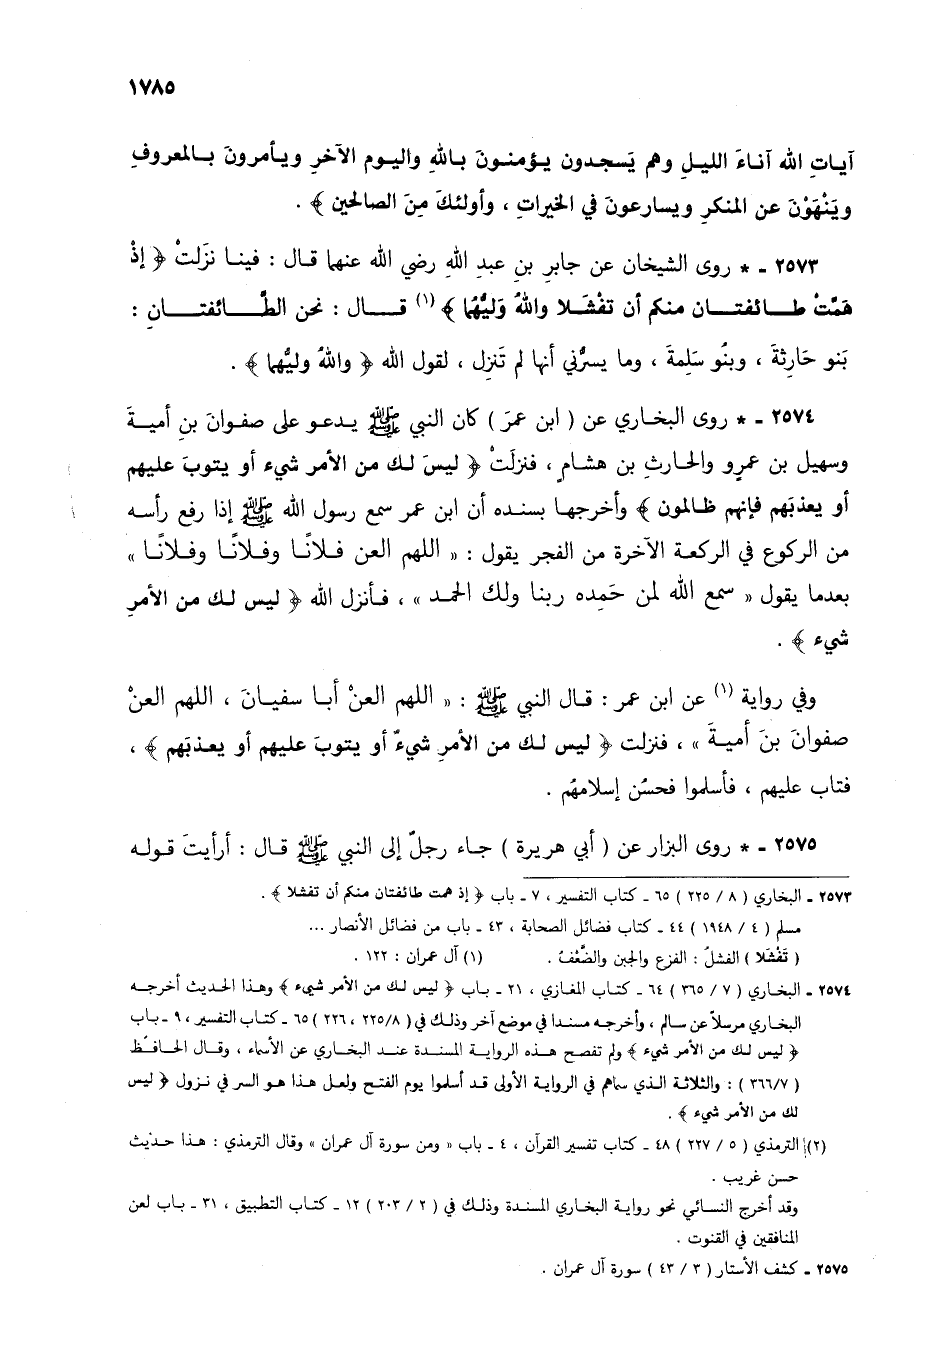 ١٧٨٥
آياتِ الله آناءَ الليلِ وهم يَسجدون يؤمنونَ باللهِ واليوم الآخرِ ويأمرونَ بالمعروفِ
ويَنْهَوْنَ عن المنكرِ ويسارعونَ في الخيراتِ ، وأولئكَ مِنَ الصالحين ﴾ .
٢٥٧٣ - * روى الشيخان عن جابرِ بنِ عبدِ اللهِ رضي الله عنهما قال : فينا نزَلتْ ﴿ إذْ
هَمَّتْ طائفتان منكم أن تفْشَلا واللهُ وَليُّهُما ﴾ (١) قال : نحن الطَّائفتان :
بَنو حَارِثةَ ، وبنُو سَلِمةَ ، وما يسرُّني أنها لم تَنزِل ، لقول الله ﴿ واللهُ وليُّهما ﴾ .
٢٥٧٤ - * روى البخاري عن ( ابن عمرَ ) كان النبي ﷺ يدعو على صفوانَ بنِ أميةَ
وسهيل بن عمرٍو والحارثِ بن هشامٍ ، فنزلَتْ ﴿ ليسَ لك من الأمر شيء أو يتوبَ عليهم
أو يعذبَهم فإنهم ظالمون ﴾ وأخرجها بسنده أن ابن عمر سمع رسول الله ﷺ إذا رفع رأسه
من الركوع في الركعة الآخرة من الفجر يقول : « اللهم العن فلانًا وفلانًا وفلانًا »
بعدما يقول « سمع الله لمن حَمِده ربنا ولك الحمد » ، فأنزل الله ﴿ ليس لك من الأمرِ
شيء ﴾ .
وفي رواية (١) عن ابن عمر : قال النبي ﷺ : « اللهم العنْ أبا سفيانَ ، اللهم العنْ
صفوانَ بنَ أميةَ » ، فنزلت ﴿ ليس لك من الأمرِ شيءٌ أو يتوبَ عليهم أو يعذبَهم ﴾ ،
فتاب عليهم ، فأسلموا فحسُن إسلامهُم .
٢٥٧٥ - * روى البزار عن ( أبي هريرة ) جاء رجلٌ إلى النبي ﷺ قال : أرأيتَ قوله
٢٥٧٣ - البخاري ( ٨ / ٢٢٥ ) ٦٥ - كتاب التفسير ، ٧ - باب ﴿ إذ همت طائفتان منكم أن تفشلا ﴾ .
مسلم ( ٤ / ١٩٤٨ ) ٤٤ - كتاب فضائل الصحابة ، ٤٣ - باب من فضائل الأنصار ...
( تَفْشَلا ) الفشلُ : الفزع والجبن والضَّعْفُ . (١) آل عمران : ١٢٢ .
٢٥٧٤ - البخاري ( ٧ / ٣٦٥ ) ٦٤ - كتاب المغازي ، ٢١ - باب ﴿ ليس لك من الأمر شيء ﴾ وهذا الحديث أخرجه
البخاري مرسلاً عن سالم ، وأخرجه مسندا في موضع آخر وذلك في ( ٢٢٥/٨ ، ٢٢٦ ) ٦٥ - كتاب التفسير ، ٩ - باب
﴿ ليس لك من الأمر شيء ﴾ ولم تفصح هذه الرواية المسندة عند البخاري عن الأسماء ، وقال الحافظ
( ٣٦٦/٧ ) : والثلاثة الذي سماهم في الرواية الأولى قد أسلموا يوم الفتح ولعل هذا هو السر في نزول ﴿ ليس
لك من الأمر شيء ﴾ .
(٢) الترمذي ( ٥ / ٢٢٧ ) ٤٨ - كتاب تفسير القرآن ، ٤ - باب « ومن سورة آل عمران » وقال الترمذي : هذا حديث
حسن غريب .
وقد أخرج النسائي نحو رواية البخاري المسندة وذلك في ( ٢ / ٢٠٣ ) ١٢ - كتاب التطبيق ، ٣١ - باب لعن
المنافقين في القنوت .
٢٥٧٥ - كشف الأستار ( ٣ / ٤٣ ) سورة آل عمران .